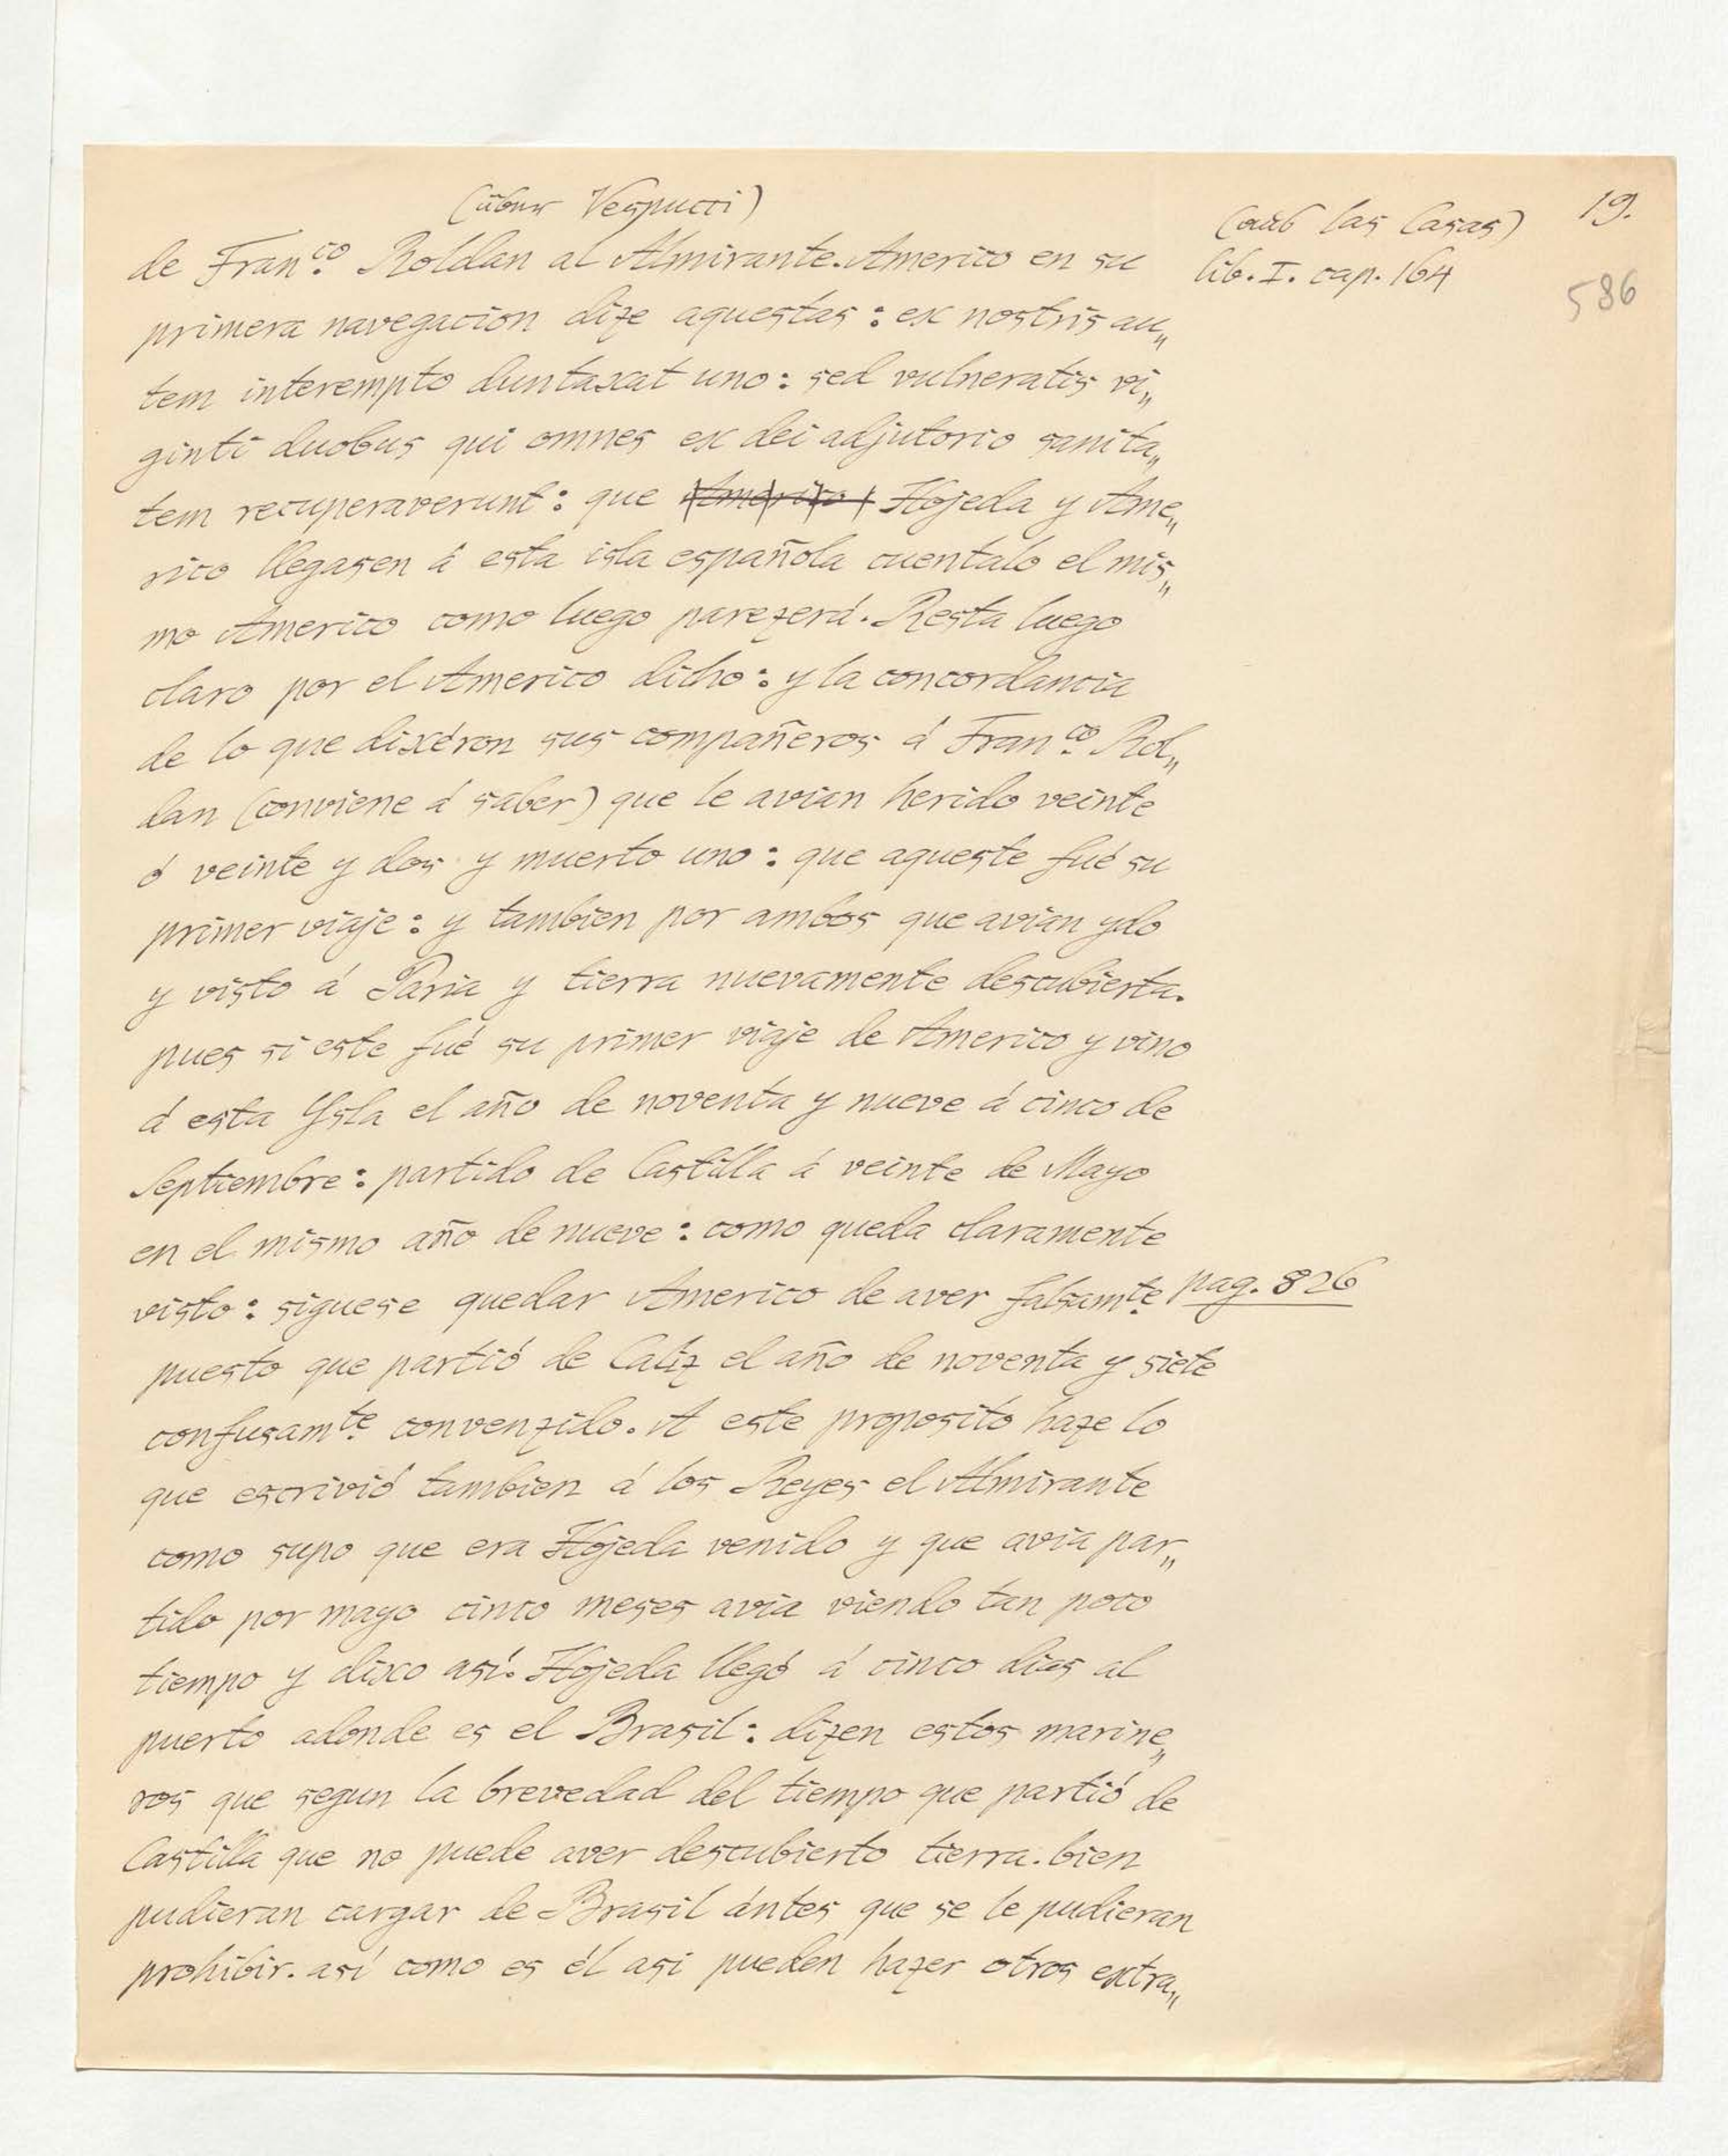 (über Vespucci)
(aus las Casas)
19.
lib. I. cap. 164
586
de Fran.co Roldan al Almirante. Americo en su
primera navegacion dize aquestas: ex nostris au„
tem interempto duntaxat uno: sed vulneratis vi„
ginti duobus qui omnes ex dei adjutorio sanita„
tem recuperaverunt: que Americo Hojeda y Ame„
rico llegasen á esta isla española cuentalo el mis„
mo Americo como luego parezerá. Resta luego
claro por el Americo dicho: y la concordancia
de lo que dixéron sus compañeros á Fran.co Rol„
dan (conviene á saber) que le avian herido veinte
ó veinte y dos y muerto uno: que aqueste fué su
primer viaje: y tambien por ambos que avian ydo
y visto á Paria y tierra nuevamente descubierta.
pues si este fué su primer viaje de Americo y vino
á esta Ysla el año de noventa y nueve á cinco de
Septiembre: partido de Castilla á veinte de Mayo
en el mismo año de nueve: como queda claramente
visto: siguese quedar Americo de aver falsam.te pag. 826
puesto que partió de Caliz el año de noventa y siete
confusam.te convenzido. A este proposito haze lo
que escrivió tambien á los Reyes el Almirante
como supo que era Hojeda venido y que avia par„
tido por mayo cinco meses avia viendo tan poco
tiempo y dixo así. Hojeda llegó á cinco dias al
puerto adonde es el Brasil: dizen estos marine„
ros que segun la brevedad del tiempo que partió de
Castilla que no puede aver descubierto tierra. bien
pudieran cargar de Brasil ántes que se le pudieran
prohibir. así como es él asi pueden hazer otros extra„